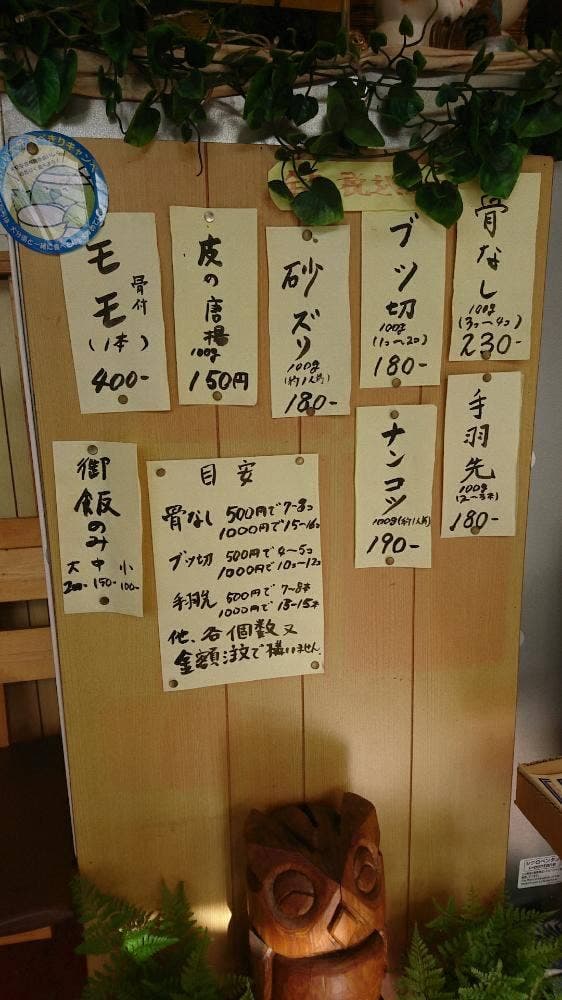 骨なし
100g
(3コ〜4コ)
230-
ブツ切
100g
(1コ〜2コ)
180-
砂ズリ
100g
(約1人前)
180-
皮の唐揚
100g
150円
モモ
骨付
(1本)
400-
手羽先
100g
(2〜3本)
180-
ナンコツ
100g(約1人前)
190-
目安
骨なし 500円で7〜8コ
1000円で15〜16コ
ブツ切 500円で4〜5コ
1000円で10コ〜12コ
手羽先 500円で7〜8本
1000円で13〜15本
他、各個数又
金額注文で構いません。
御飯のみ
大 中 小
200- 150- 100-